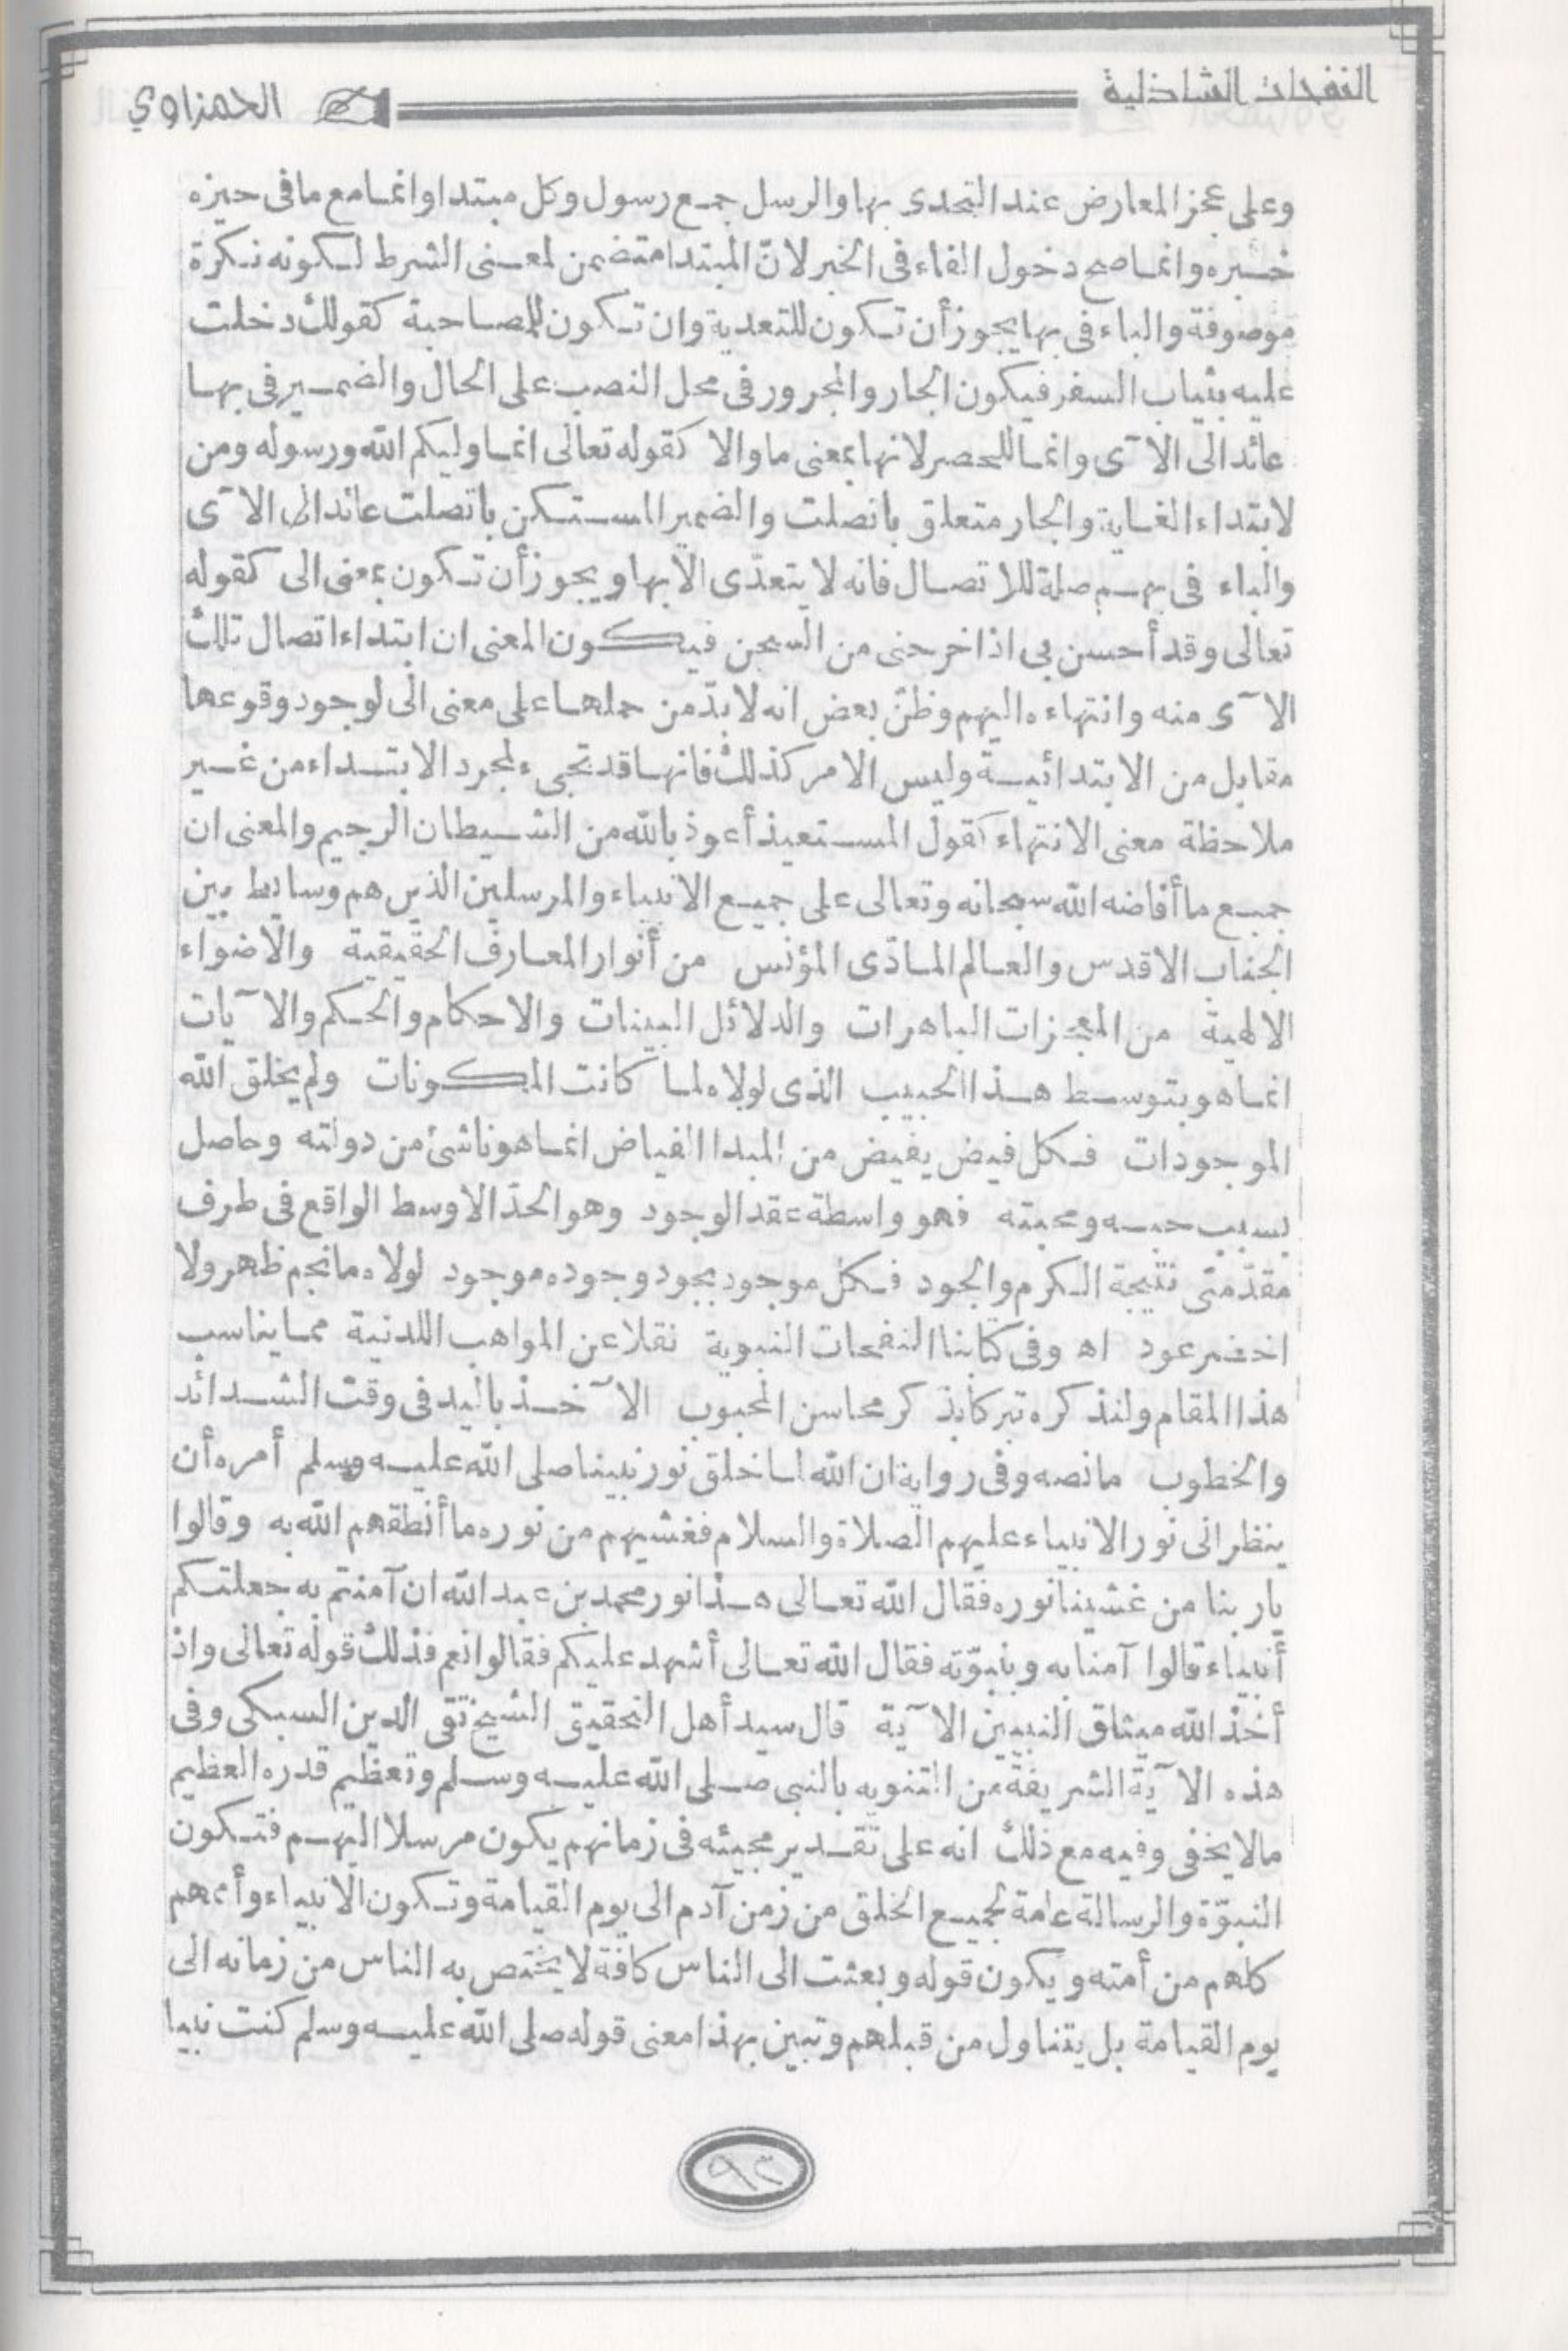 النفحات الشاذلية الحمزاوي
وعلى عجز المعارض عند التحدى بها والرسل جمع رسول وكل مبتدا وانما مع ما فى حيزه
خبره وانما صح دخول الفاء فى الخبر لانّ المبتدا متضمن لمعنى الشرط لكونه نكرة
موصوفة والباء فى بها يجوز أن تكون للتعدية وان تكون للمصاحبة كقولك دخلت
عليه بثياب السفر فيكون الجار والمجرور فى محل النصب على الحال والضمير فى بها
عائد الى الآى وانما للحصر لانها بمعنى ما والا كقوله تعالى انما وليكم الله ورسوله ومن
لابتداء الغاية والجار متعلق باتصلت والضمير المستكن باتصلت عائد الى الآى
والباء فى بهم صلة للاتصال فانه لا يتعدّى الا بها ويجوز أن تكون بمعنى الى كقوله
تعالى وقد أحسن بى اذ اخرجنى من السجن فيكون المعنى ان ابتداء اتصال تلك
الآى منه وانتهاءه اليهم وظنّ بعض انه لا بدّ من حملها على معنى الى لوجود وقوعها
مقابل من الابتدائية وليس الامر كذلك فانها قد تجىء لمجرد الابتداء من غير
ملاحظة معنى الانتهاء كقول المستعيذ أعوذ بالله من الشيطان الرجيم والمعنى ان
جميع ما أفاضه الله سبحانه وتعالى على جميع الانبياء والمرسلين الذين هم وسايط بين
الجناب الاقدس والعالم المادّى المؤنس من أنوار المعارف الحقيقية والاضواء
الالهية من المعجزات الباهرات والدلائل البينات والاحكام والحكم والآيات
انما هو بتوسط هذا الحبيب الذى لولاه لما كانت المكونات ولم يخلق الله
الموجودات فكل فيض يفيض من المبدا الفياض انما هو ناشئ من دولته وحاصل
بسبب حبه ومحبته فهو واسطة عقد الوجود وهو الحدّ الاوسط الواقع فى طرف
مقدّمتى نتيجة الكرم والجود فكل موجود بجود وجوده موجود لولاه ما نجم ظهر ولا
اخضر عود اه وفى كتابنا النفحات النبوية نقلا عن المواهب اللدنية مما يناسب
هذا المقام ولنذكره تبركا بذكر محاسن المحبوب الآخذ باليد فى وقت الشدائد
والخطوب ما نصه وفى رواية ان الله لما خلق نور نبينا صلى الله عليه وسلم أمره أن
ينظر الى نور الانبياء عليهم الصلاة والسلام فغشيهم من نوره ما أنطقهم الله به وقالوا
يا ربنا من غشينا نوره فقال الله تعالى هذا نور محمد بن عبد الله ان آمنتم به جعلتكم
أنبياء قالوا آمنا به وبنبوّته فقال الله تعالى أشهد عليكم فقالوا نعم فذلك قوله تعالى واذ
أخذ الله ميثاق النبيين الآية قال سيد أهل التحقيق الشيخ تقى الدين السبكى وفى
هذه الآية الشريفة من التنويه بالنبى صلى الله عليه وسلم وتعظيم قدره العظيم
مالا يخفى وفيه مع ذلك انه على تقدير مجيئه فى زمانهم يكون مرسلا اليهم فتكون
النبوّة والرسالة عامة لجميع الخلق من زمن آدم الى يوم القيامة وتكون الانبياء وأممهم
كلهم من أمته ويكون قوله وبعثت الى الناس كافة لا يختص به الناس من زمانه الى
يوم القيامة بل يتناول من قبلهم وتبين بهذا معنى قوله صلى الله عليه وسلم كنت نبيا